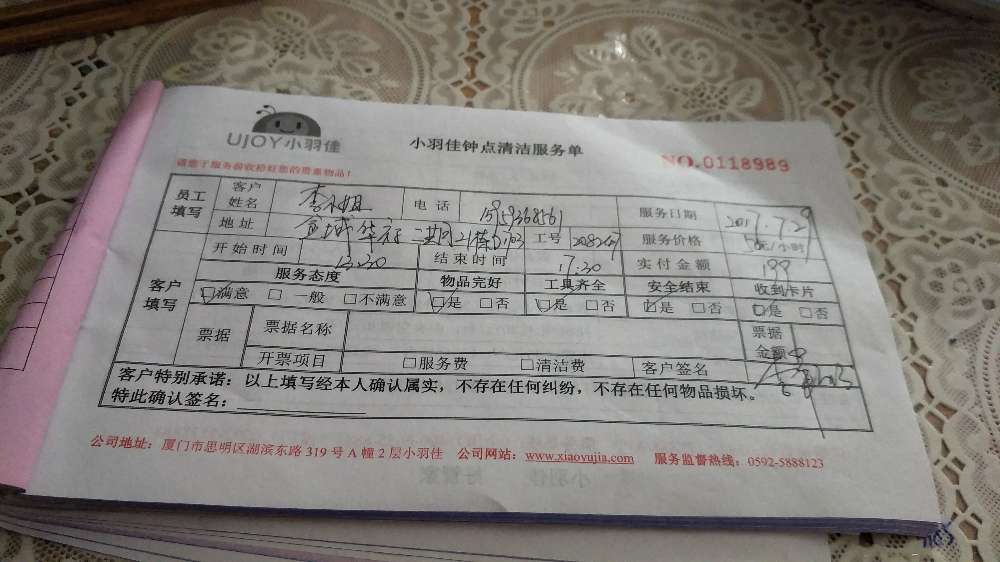 UJOY小羽佳
小羽佳钟点清洁服务单
NO.0118989
请您于服务前收拾好您的贵重物品！
员工填写 客户姓名 李小姐 电话 服务日期 2017.7.29
地址 二期21栋 工号 服务价格 元/小时
客户填写 开始时间 13:30 结束时间 17:30 实付金额 199
服务态度 物品完好 工具齐全 安全结束 收到卡片
满意 □一般 □不满意 是 □否 是 □否 是 □否 是 □否
票据 票据名称 票据金额
开票项目 □服务费 □清洁费 客户签名
客户特别承诺：以上填写经本人确认属实，不存在任何纠纷，不存在任何物品损坏。
特此确认签名：
公司地址：厦门市思明区湖滨东路 319 号 A 幢 2 层小羽佳 公司网站：www.xiaoyujia.com 服务监督热线：0592-5888123